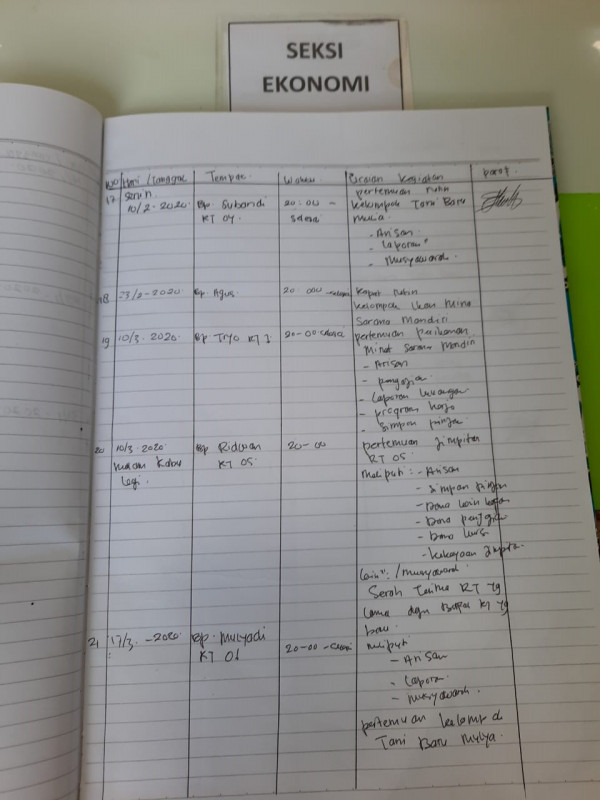 SEKSI
EKONOMI
NO Hari/Tanggal Tempat Waktu Uraian Kegiatan paraf
17 Senin 10/2-2020 Bp Subandi RT 04 20:00 - selesai pertemuan rutin
kelompok Tani Baru
Mulia
- Arisan
- Laporan"
- Musyawarah
18 23/2-2020 Bp. Agus 20.00 - selesai Rapat Rutin
kelompok Ikan Mina
Sarana Mandiri
19 10/3.2020 Bp Tryo RT 1 20-00 selesai pertemuan perikanan
Minat Sarana Mandiri
- Arisan
- pengajian
- Laporan keuangan
- program kerja
- simpan pinjam
20 10/3.2020 malam Rabu legi. Bp Ridwan RT 05 20-00 pertemuan Jimpitan
RT 05
meliputi: - Arisan
- simpan pinjam
- Dana
- Dana
- Dana kursi
- kekayaan
lain": /musyawarah
Serah terima RT yg
lama dgn Bapak RT yg
baru
21 17/3.-2020. Bp. Mulyadi RT 01 20-00 - selesai meliputi
- Arisan
- Laporan
- Musyawarah.
pertemuan kelompok
Tani Baru Mulya.